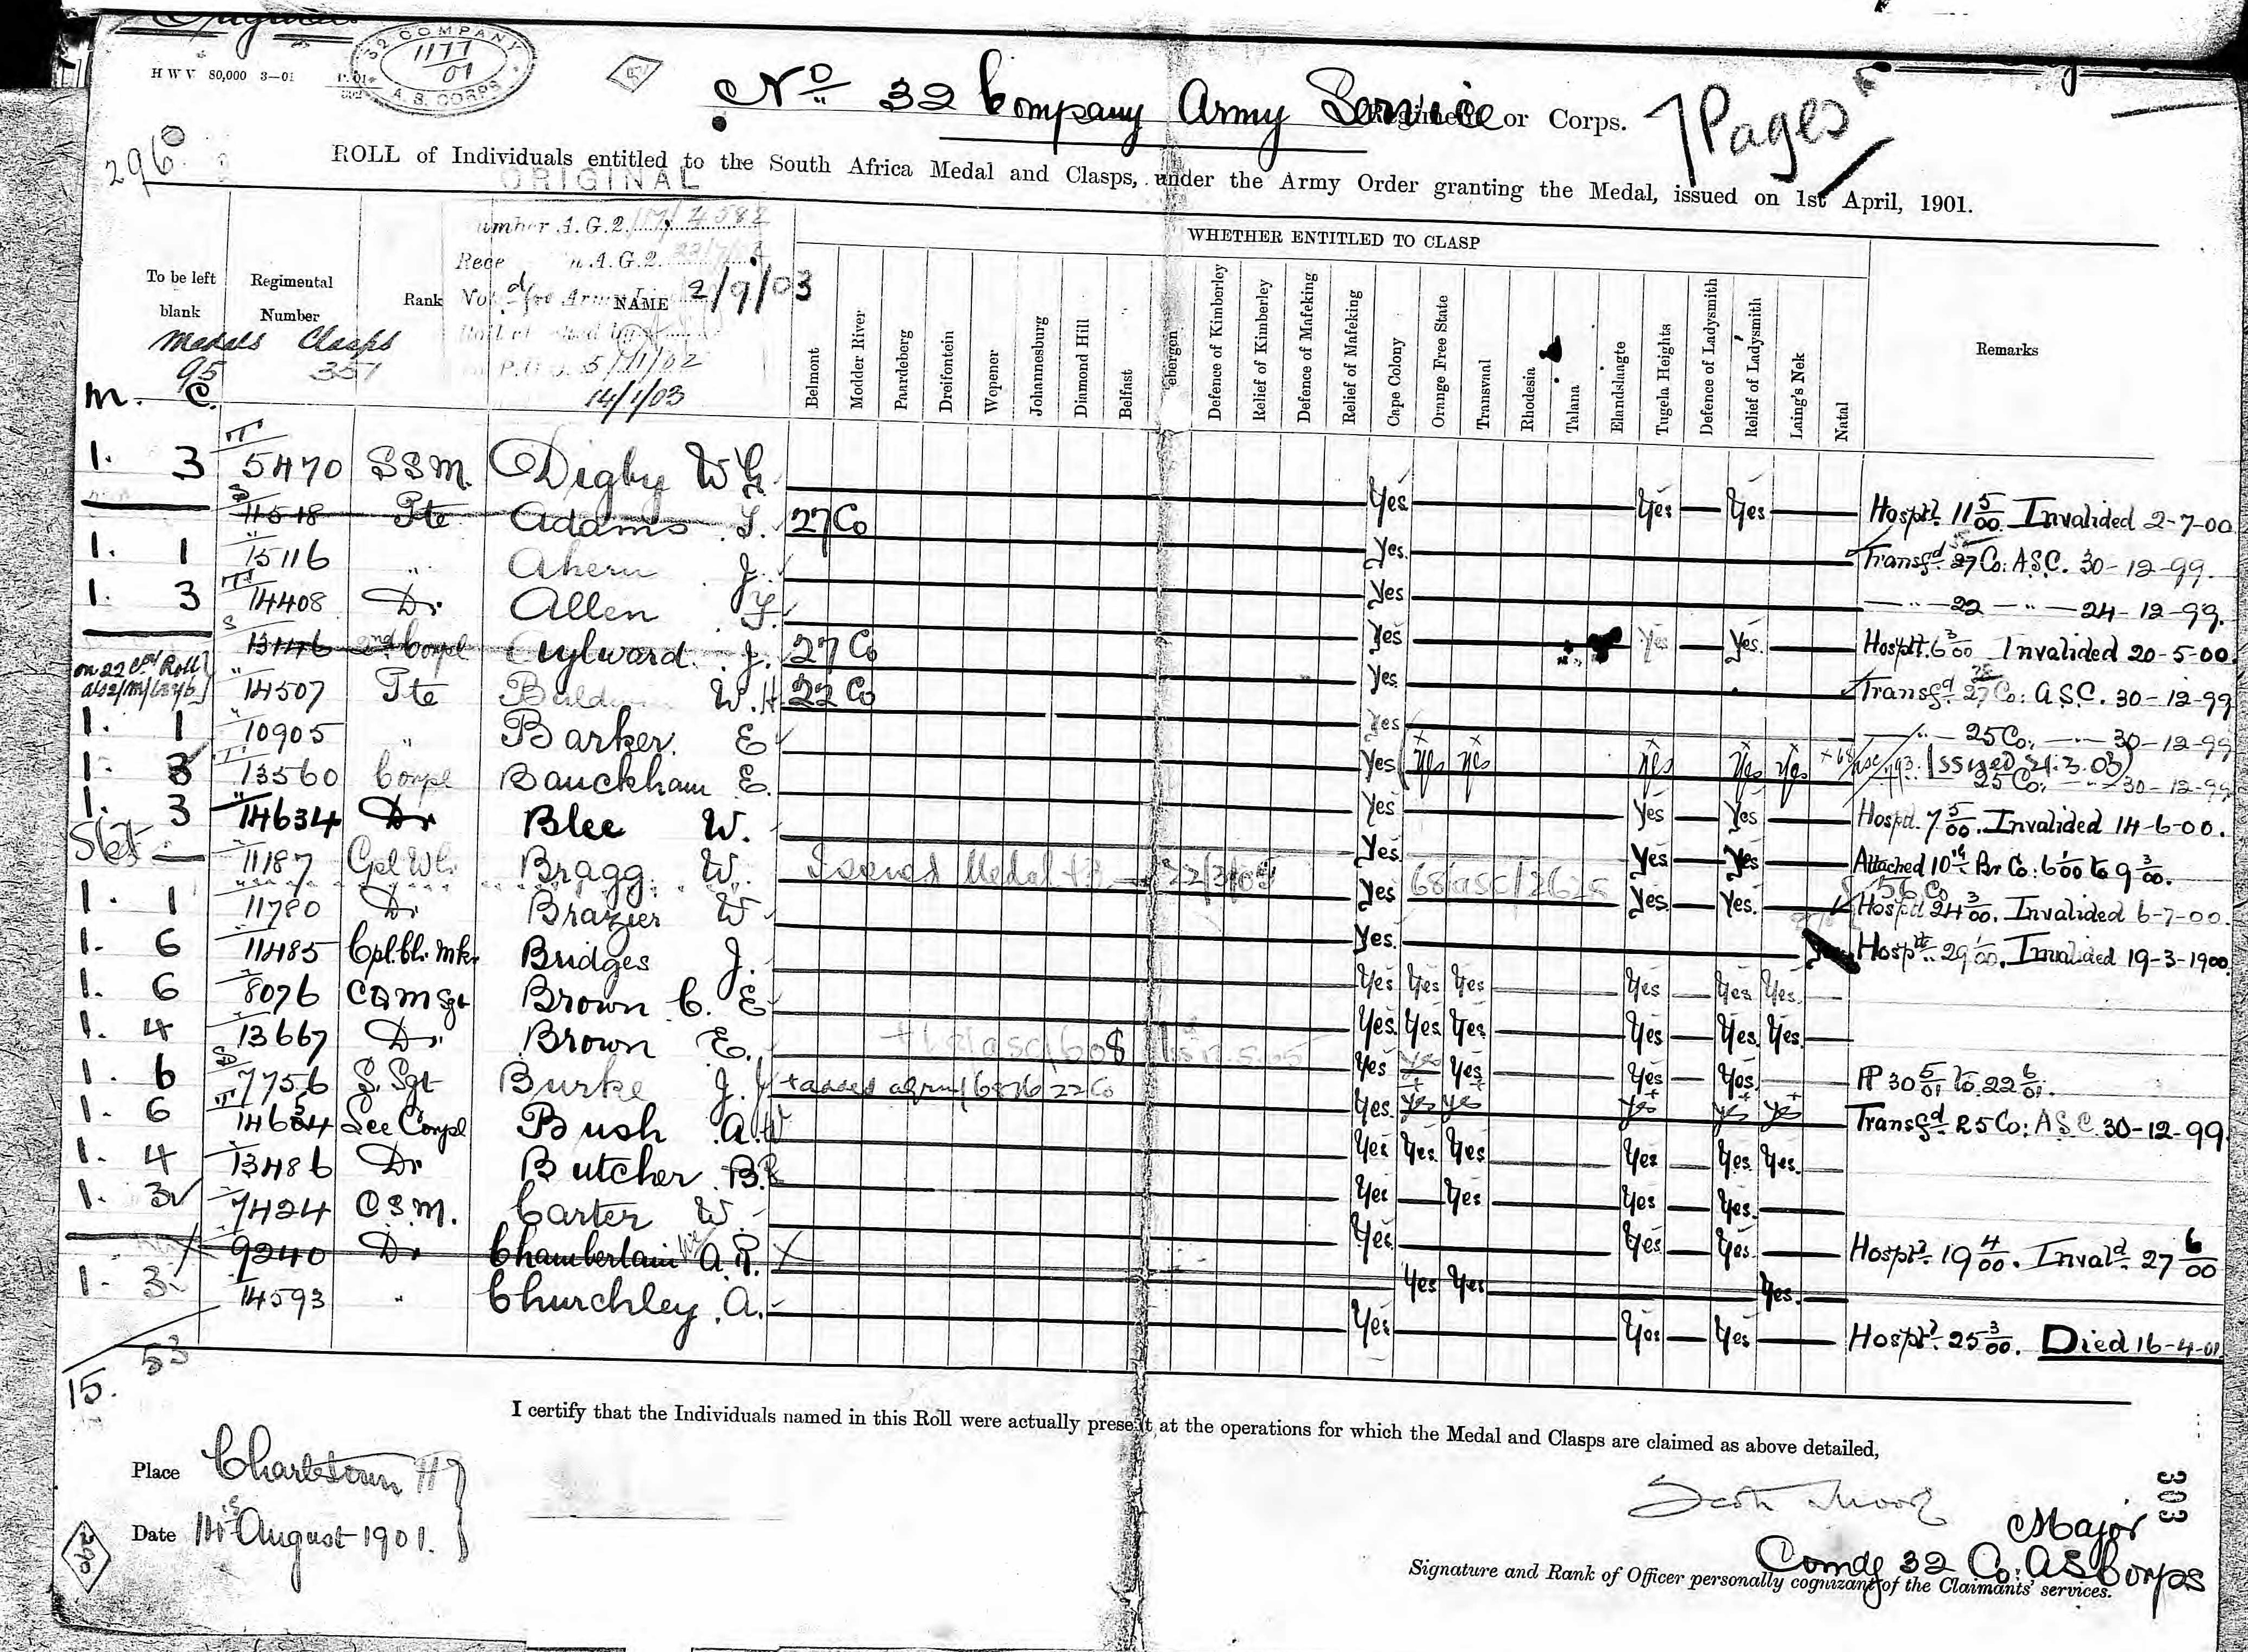 Original
32 COMPANY 1177/01 A. S. CORPS
H W V 80,000 3—01
No 32 Company Army Service Regiment or Corps. 7 Pages
296
ROLL of Individuals entitled to the South Africa Medal and Clasps, under the Army Order granting the Medal, issued on 1st April, 1901.
ORIGINAL
WHETHER ENTITLED TO CLASP
To be left blank Regimental Number Rank NAME Belmont Modder River Paardeberg Dreifontein Wepener Johannesburg Diamond Hill Belfast Defence of Kimberley Relief of Kimberley Defence of Mafeking Relief of Mafeking Cape Colony Orange Free State Transvaal Rhodesia Talana Elandslaagte Tugela Heights Defence of Ladysmith Relief of Ladysmith Laing's Nek Natal Remarks
Number A.G.2. 4582
2/9/03
5/11/02
14/1/03
Medals Clasps
95 351
M. C.
1. 3 5470 SSM. Digby W G. Yes Yes Yes Hosptl 11 5/00 Invalided 2-7-00
11518 Pte Adams 27 Co Yes. Transfd 27 Co: A.S.C. 30-12-99.
1. 1 15116 " Ahern J. Yes — " — 22 — " — 24-12-99.
1. 3 14408 Dr Allen Yes Yes Yes. Hosptl. 6 3/00 Invalided 20-5-00.
13146 2nd Corpl Aylward. J. 27 Co Yes. Transfd 27 Co: A.S.C. 30-12-99
on 22 Coy Roll 14507 Pte W.H 22 Co Yes — " — 25 Co: — " — 30-12-99
1. 1 10905 " Barker. E Yes Yes Yes Yes Yes Yes Issued 21.3.03 25 Co: — " — 30-12-99
1. 3 13560 Corpl Bauckham E. Yes Yes Yes Hosptl. 7 5/00. Invalided 14-6-00.
1. 3 14634 Dr Blee W. Yes. Yes Yes Attached 10th Br Co: 6 1/00 to 9 3/00.
11187 Bragg. W. Issued Medal Yes 68/asc/2625 Yes. Yes. Hosptl 24 3/00. Invalided 6-7-00.
1. 1 11780 Dr Brazier W Yes. Hosptl 29 1/00. Invalided 19-3-1900.
1. 6 11485 Bridges J. Yes Yes Yes Yes Yes Yes.
1. 6 8076 CQM Sgt Brown C. E Yes. Yes. Yes Yes Yes. Yes.
1. 4 13667 Dr Brown E. Yes Yes Yes Yes. 30 5/01 to 22 6/01.
1. 6 7756 S. Sgt Burke J. J 22 Co Yes. Yes Yes Yes Yes Yes Transfd 25 Co: A.S.C. 30-12-99.
1. 6 Bush A.W Yes Yes. Yes Yes Yes. Yes.
1. 4 13486 Dr Butcher Yes Yes Yes Yes.
1. 3 7424 C S M. Carter W. Yes. Yes. Yes. Hosptl 19 4/00. Invald 27 6/00
9240 Dr Chamberlain Yes Yes Yes.
1. 3 14593 " Churchley A. Yes Yes Yes Hosptl 25 3/00. Died 16-4-01
15. 53
I certify that the Individuals named in this Roll were actually present at the operations for which the Medal and Clasps are claimed as above detailed,
Place Charlestown
Date 14th August 1901.
Major
Comdg 32 Co: A S Corps
Signature and Rank of Officer personally cognizant of the Claimants' services.
303
290